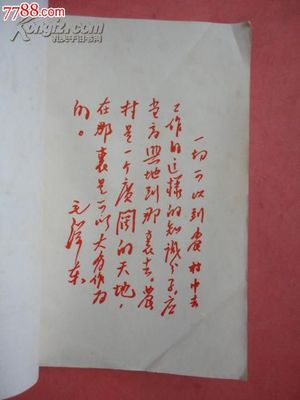 7788.com
孔夫子旧书网
一切可以到农村中去
工作的这样的知识分子，应
当高兴地到那裏去。農
村是一个廣阔的天地，
在那裏是可以大有作为
的。
毛泽东